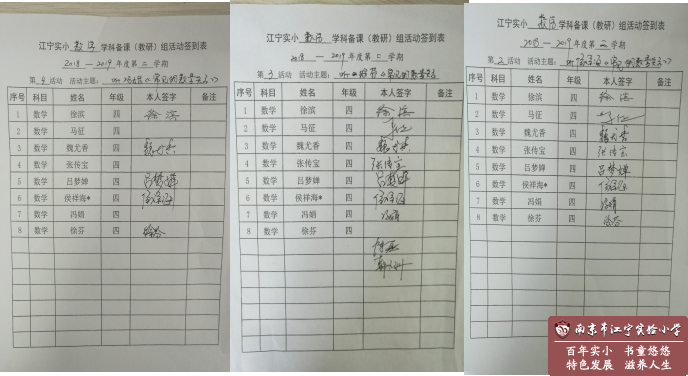 江宁实小 数学 学科备课（教研）组活动签到表
2018 — 2019年度第二学期
第 4 活动 活动主题：
序号 科目 姓名 年级 本人签字 备注
1 数学 徐滨 四 徐滨
2 数学 马征 四
3 数学 魏尤香 四 魏尤香
4 数学 张传宝 四
5 数学 吕梦婵 四 吕梦婵
6 数学 侯祥海* 四 侯祥海
7 数学 冯娟 四
8 数学 徐芬 四 徐芬
江宁实小 数学 学科备课（教研）组活动签到表
2018 — 2019年度第二学期
第 3 活动 活动主题：
序号 科目 姓名 年级 本人签字 备注
1 数学 徐滨 四 徐滨
2 数学 马征 四 马征
3 数学 魏尤香 四 魏尤香
4 数学 张传宝 四 张传宝
5 数学 吕梦婵 四 吕梦婵
6 数学 侯祥海* 四 侯祥海
7 数学 冯娟 四 冯娟
8 数学 徐芬 四
江宁实小 数学 学科备课（教研）组活动签到表
2018 — 2019年度第二学期
第 2 活动 活动主题：
序号 科目 姓名 年级 本人签字 备注
1 数学 徐滨 四 徐滨
2 数学 马征 四 马征
3 数学 魏尤香 四 魏尤香
4 数学 张传宝 四 张传宝
5 数学 吕梦婵 四 吕梦婵
6 数学 侯祥海* 四 侯祥海
7 数学 冯娟 四 冯娟
8 数学 徐芬 四 徐芬
南京市江宁实验小学
百年实小 书童悠悠
特色发展 滋养人生